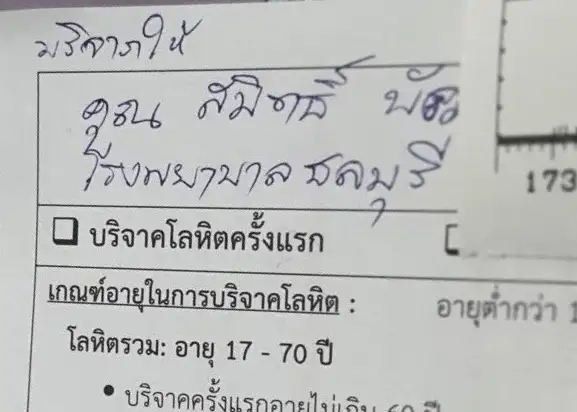 บริจาคให้
คุณ สมิทธิ์ พัฒ
โรงพยาบาลชลบุรี
173
☐ บริจาคโลหิตครั้งแรก
เกณฑ์อายุในการบริจาคโลหิต : อายุต่ำกว่า 1
โลหิตรวม: อายุ 17 - 70 ปี
• บริจาคครั้งแรกอายุไม่เกิน 60 ปี